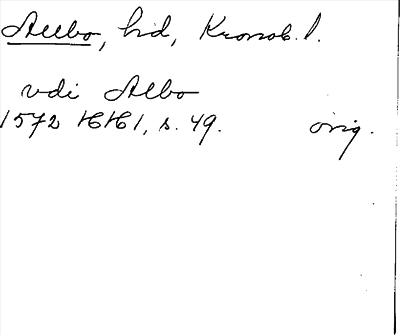 Allbo, hd, Kronob. l.
vdi Albo
1572 HH1, s. 49. orig.